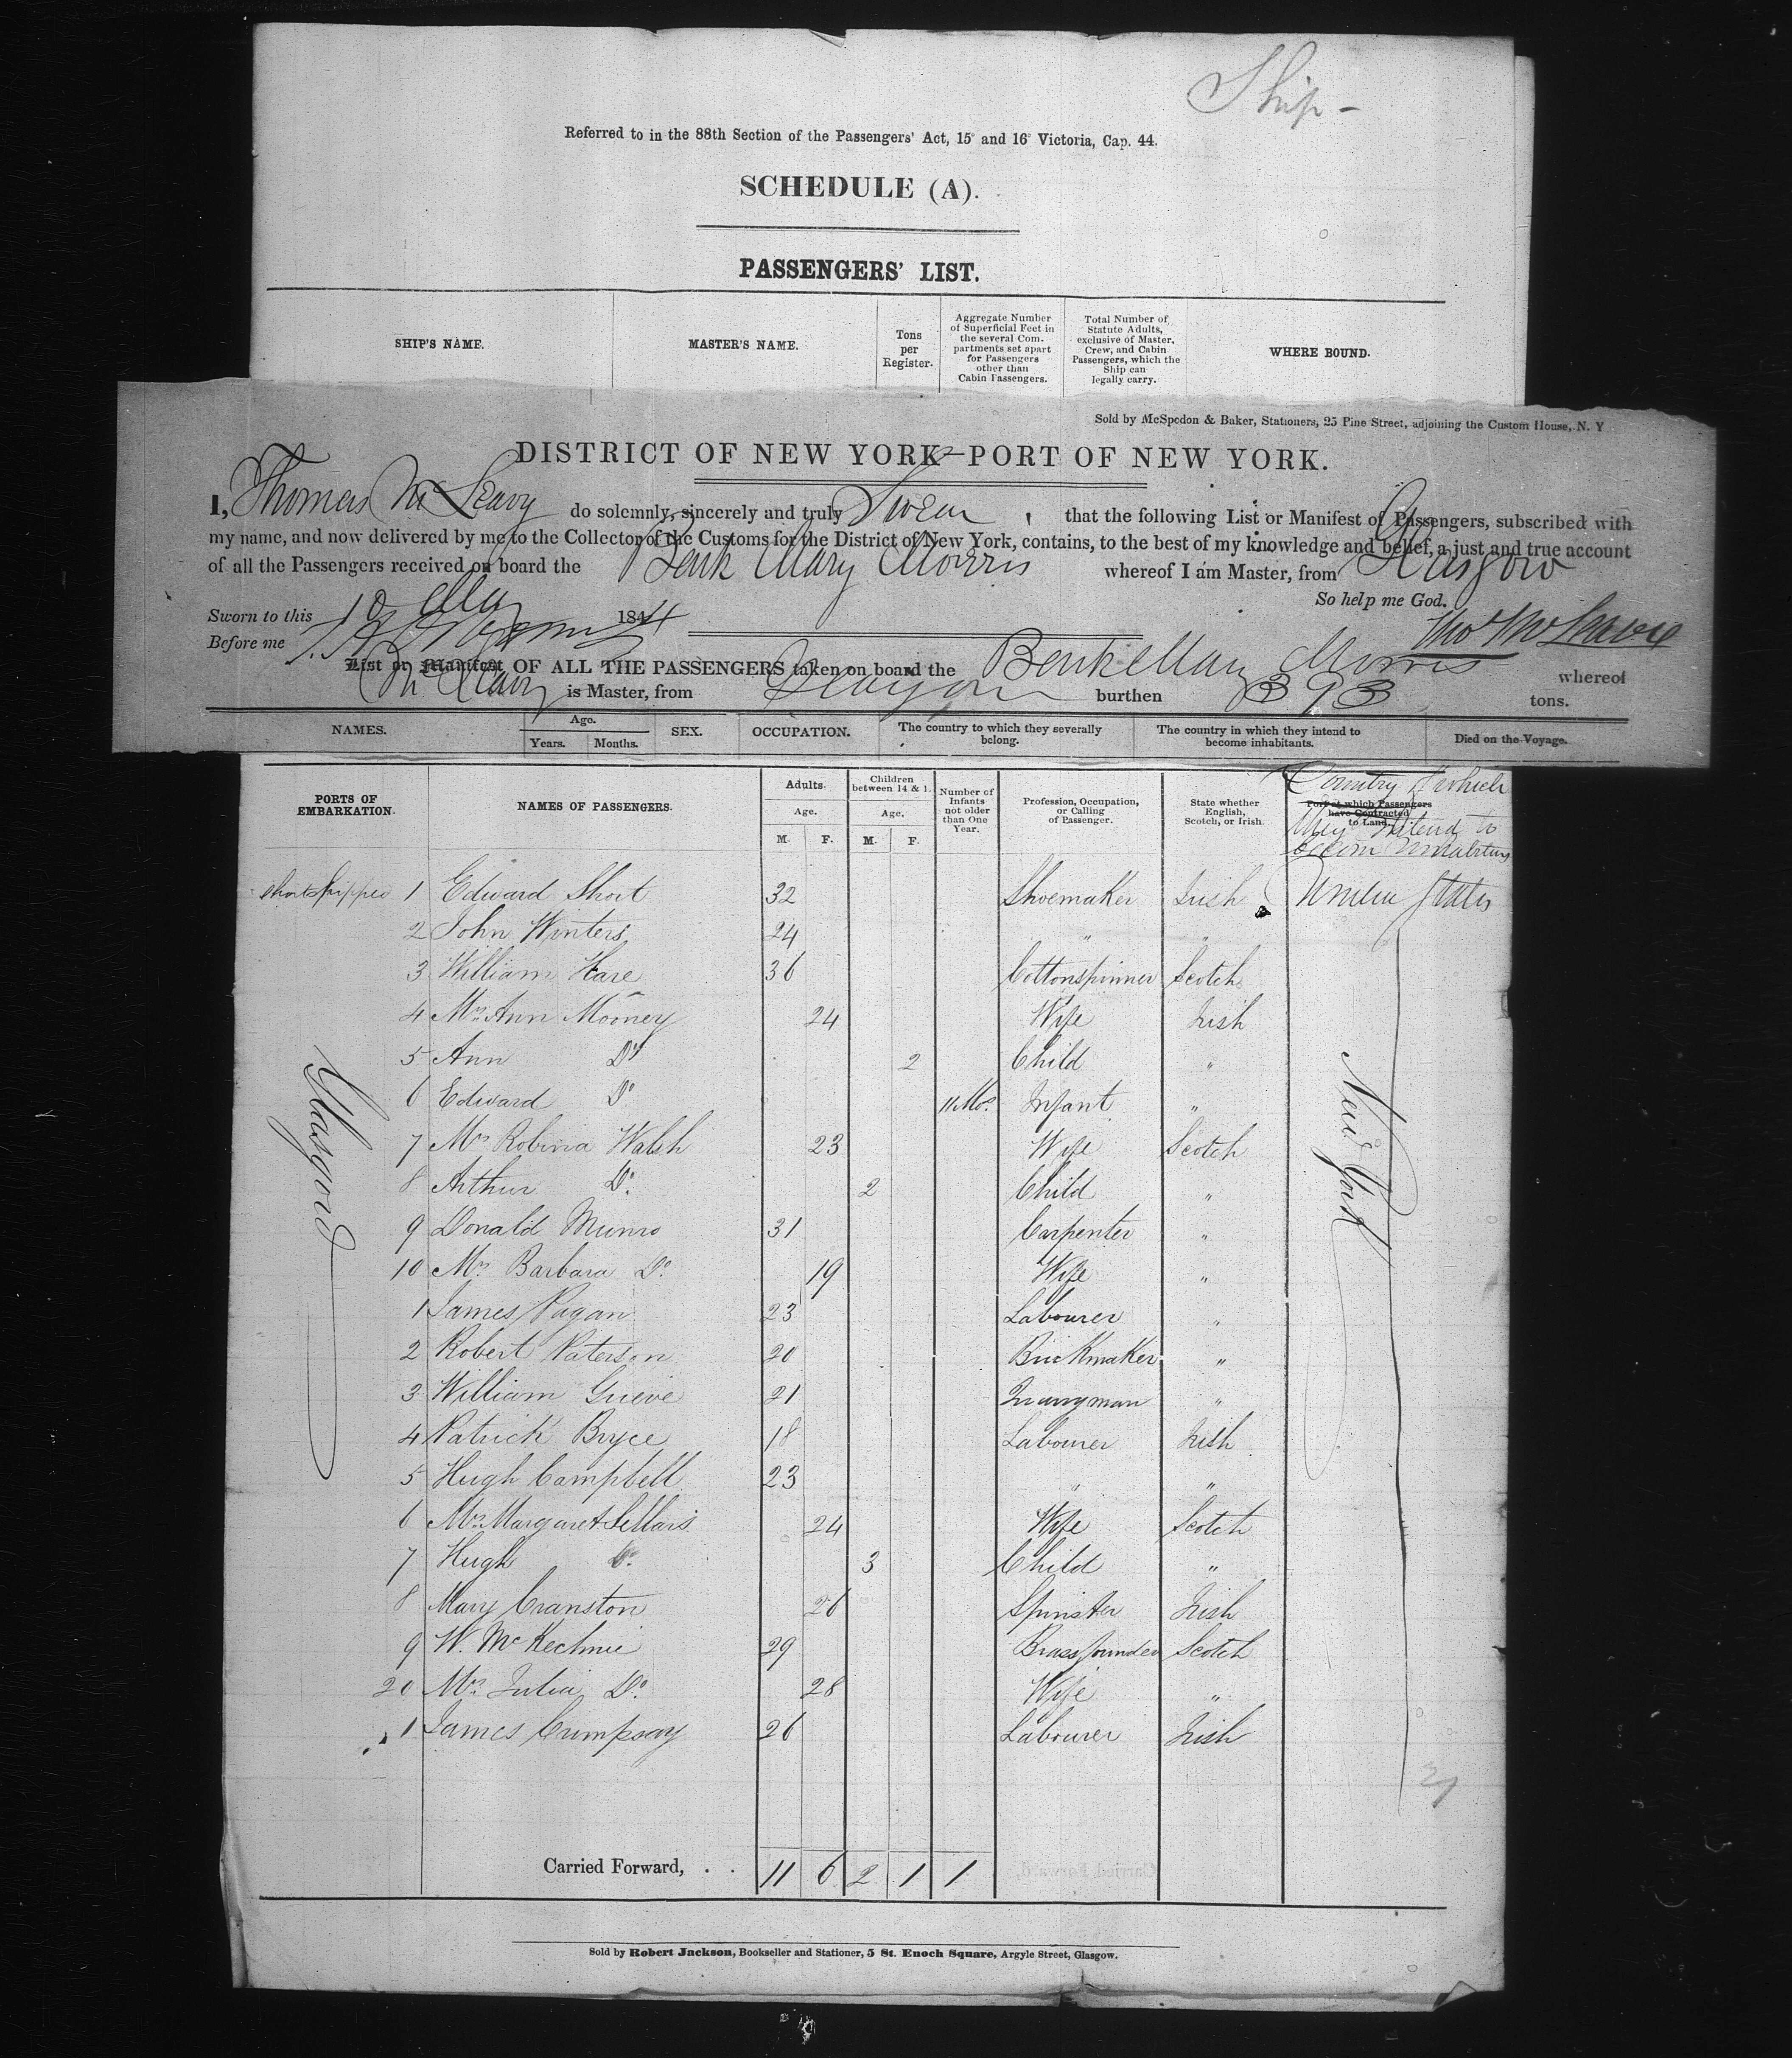 Ship -
Referred to in the 88th Section of the Passengers' Act, 15° and 16° Victoria, Cap. 44.
SCHEDULE (A).
PASSENGERS' LIST.
SHIP'S NAME. MASTER'S NAME. Tons per Register. Aggregate Number of Superficial Feet in the several Compartments set apart for Passengers other than Cabin Passengers. Total Number of Statute Adults, exclusive of Master, Crew, and Cabin Passengers, which the Ship can legally carry. WHERE BOUND.
Sold by McSpedon & Baker, Stationers, 25 Pine Street, adjoining the Custom House, N. Y
DISTRICT OF NEW YORK—PORT OF NEW YORK.
I, Thomas McLeavy do solemnly, sincerely and truly Swear, that the following List or Manifest of Passengers, subscribed with
my name, and now delivered by me to the Collector of the Customs for the District of New York, contains, to the best of my knowledge and belief, a just and true account
of all the Passengers received on board the Bark Mary Morris whereof I am Master, from Glasgow
So help me God.
Sworn to this 10 May 1844
Before me Thos McLeavie
List or Manifest OF ALL THE PASSENGERS taken on board the Bark Mary Morris whereof
McLeavy is Master, from Glasgow burthen 393 tons.
NAMES. Age. Years. Months. SEX. OCCUPATION. The country to which they severally belong. The country in which they intend to become inhabitants. Died on the Voyage.
PORTS OF EMBARKATION. NAMES OF PASSENGERS. Adults. Age. M. F. Children between 14 & 1. Age. M. F. Number of Infants not older than One Year. Profession, Occupation, or Calling of Passenger. State whether English, Scotch, or Irish. Port at which Passengers have Contracted to Land.
Country which they intend to become Inhabitants
Shortshipped 1 Edward Short 32 Shoemaker Irish United States
2 John Winters 24 " "
3 William Hare 36 Cottonspinner Scotch
4 Mrs Ann Mooney 24 Wife Irish
5 Ann Do 2 Child "
6 Edward Do 11 Mos Infant "
7 Mrs Robina Walsh 23 Wife Scotch
8 Arthur Do 2 Child "
9 Donald Munro 31 Carpenter "
10 Mrs Barbara Do 19 Wife "
1 James Pagan 23 Labourer "
2 Robert Paterson 20 Brickmaker "
3 William Grieve 21 Quarryman "
4 Patrick Bryce 18 Labourer Irish
5 Hugh Campbell 23 " "
6 Mrs Margaret Sellars 24 Wife Scotch
7 Hugh Do 3 Child "
8 Mary Cranston 26 Spinster Irish
9 W. McKechnie 29 Brassfounder Scotch
20 Mrs Julia Do 28 Wife "
1 James Crimpsay 26 Labourer Irish
Glasgow
New York
21
Carried Forward, . . 11 6 2 1 1
Sold by Robert Jackson, Bookseller and Stationer, 5 St. Enoch Square, Argyle Street, Glasgow.